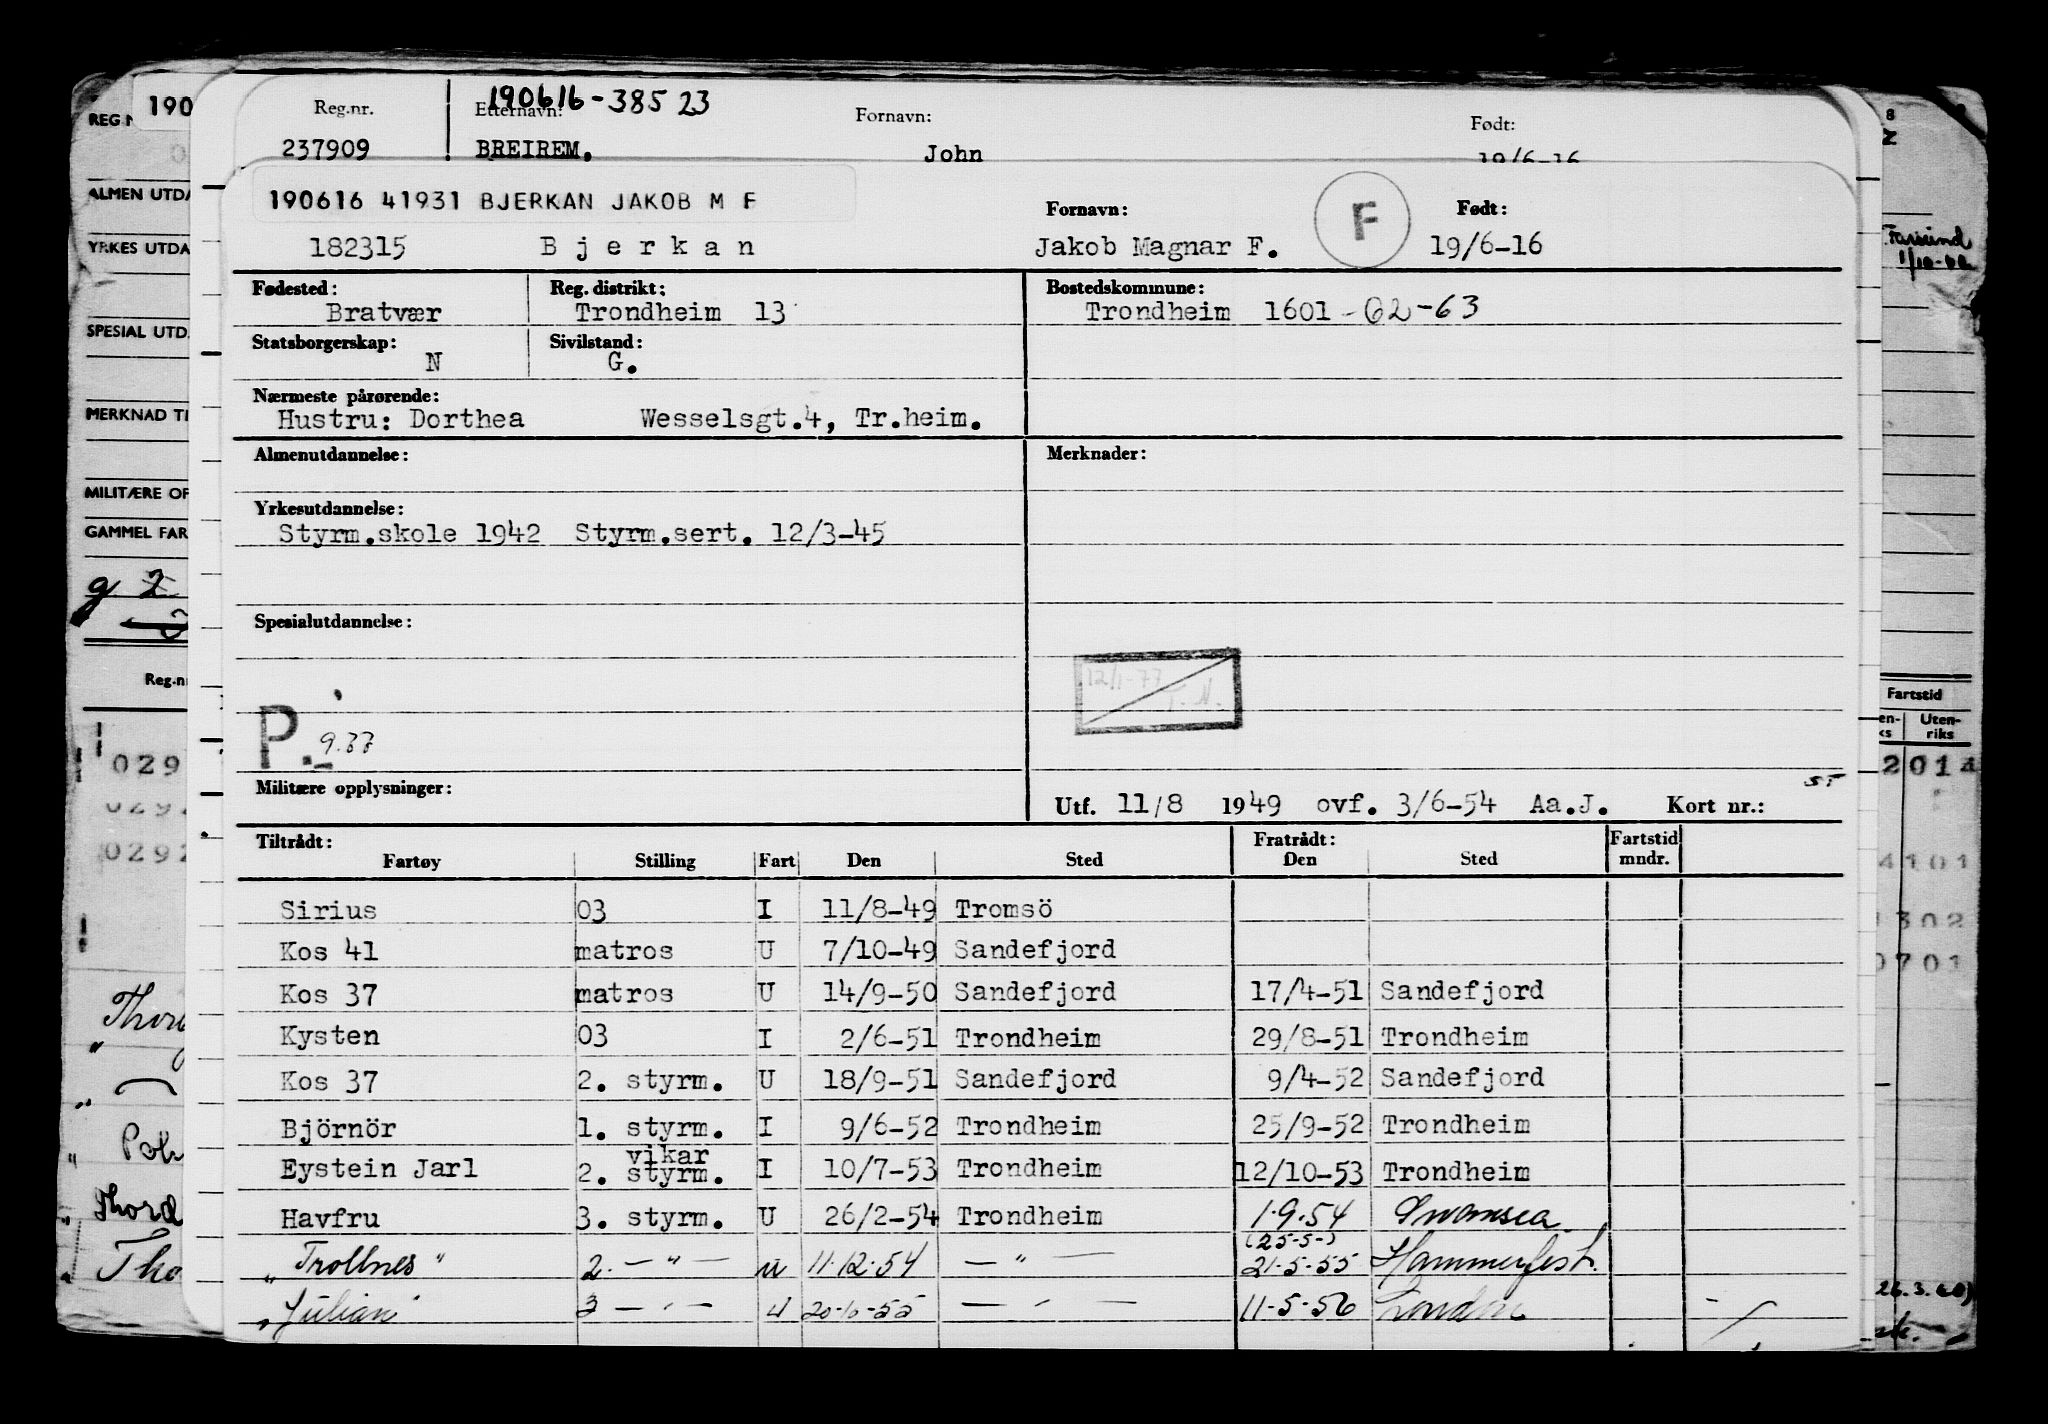 190616-38523
Reg.nr. Etternavn: Fornavn: Født:
237909 BREIREM. John 19/6-16
190616 41931 BJERKAN JAKOB M F
Fornavn: F Født:
182315 Bjerkan Jakob Magnar F. 19/6-16
Fødested: Reg. distrikt: Bostedskommune:
Bratvær Trondheim 13 Trondheim 1601 - 62-63
Statsborgerskap: Sivilstand:
N G.
Nærmeste pårørende:
Hustru: Dorthea Wesselsgt.4, Tr.heim.
Almenutdannelse: Merknader:
Yrkesutdannelse:
Styrm.skole 1942 Styrm.sert. 12/3-45
Spesialutdannelse:
12/1-77 T.N.
P. 9.77
Militære opplysninger:
Utf. 11/8 1949 ovf. 3/6-54 Aa.J. Kort nr.: ST
Tiltrådt: Fratrådt: Fartstid
Fartøy Stilling Fart Den Sted Den Sted mndr.
Sirius 03 I 11/8-49 Tromsö
Kos 41 matros U 7/10-49 Sandefjord
Kos 37 matros U 14/9-50 Sandefjord 17/4-51 Sandefjord
Kysten 03 I 2/6-51 Trondheim 29/8-51 Trondheim
Kos 37 2. styrm. U 18/9-51 Sandefjord 9/4-52 Sandefjord
Björnör 1. styrm. I 9/6-52 Trondheim 25/9-52 Trondheim
vikar
Eystein Jarl 2. styrm. I 10/7-53 Trondheim 12/10-53 Trondheim
Havfru 3. styrm. U 26/2-54 Trondheim 1.9.54 Swansea.
(25-5-)
"Trollnes" 2. — " — u 11.12.54 — " — 21.5.55 Hammerfest.
"Julian" 3 — " — u 20-10-55 — " — 11-5-56 London
190
REG N
ALMEN UTDA
YRKES UTDA
SPESIAL UTD.
MERKNAD TI
MILITÆRE OP
GAMMEL FAR
g 2
Reg.nr
029
0292
0292
Thor
Thord
8
Farsund
Fartstid
Uten-
riks
201
4101
302
0701
26.3.60)